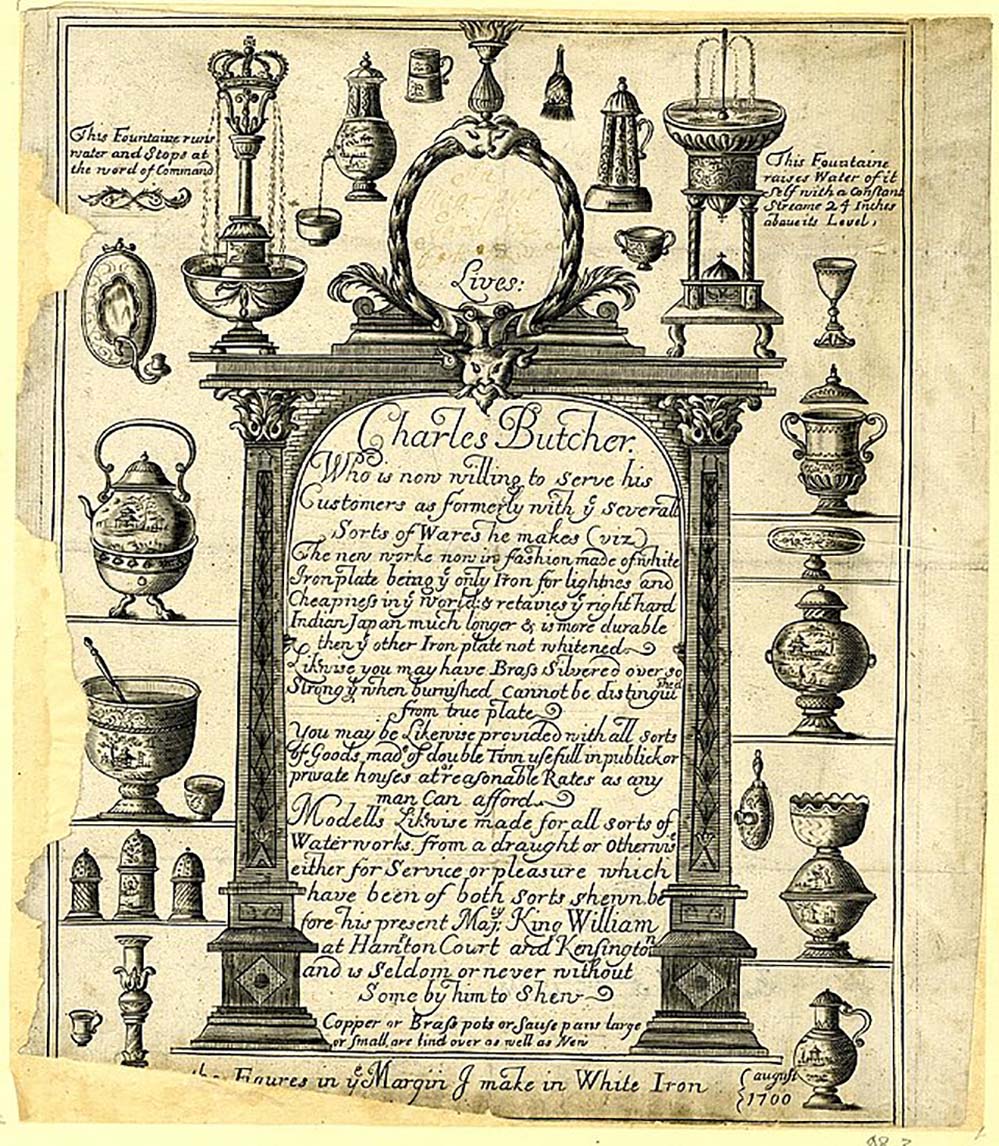 This Fountaine runs
water and Stops at
the word of Command
This Fountaine
raises Water of it
Self with a Constant
Streame 24 Inches
aboue its Level,
Lives:
Charles Butcher.
Who is now willing to serve his
Customers as formerly with ẏ severall
Sorts of Wares he makes (viz)
The new worke now in fashion made of white
Iron plate being ẏ only Iron for lightnes and
Cheapness in ẏ world: & retaines ẏ right hard
Indian Japan much longer & is more durable
then ẏ other Iron plate not whitened
Likwise you may have Brass Silvered over so
Strong ẏ when burnished Cannot be distinguished
from true plate
You may be Likewise provided with all sorts
of Goods made of double Tinn usefull in publick or
private houses at reasonable Rates as any
man Can afford
Modells Likwise made for all sorts of
Waterworks from a draught or Otherwise
either for Service or pleasure which
have been of both Sorts shewn be
fore his present Maj:ty King William
at Hamton Court and Kensington
and is Seldom or never without
Some by him to Shew
Copper or Brass pots or Sause pans large
or Small, are tind over as well as New
the Figures in ẏe Margin J make in White Iron
august
1700